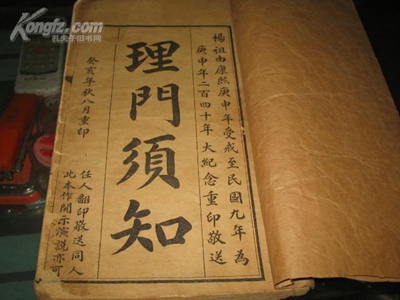 Kongfz.com
孔夫子旧书网
楊祖由康熙庚申年受戒至民國九年為
庚申年二百四十年大紀念重印敬送
理門須知
癸亥年秋八月重印
任人翻印敬送同人
此本作開示演説亦可